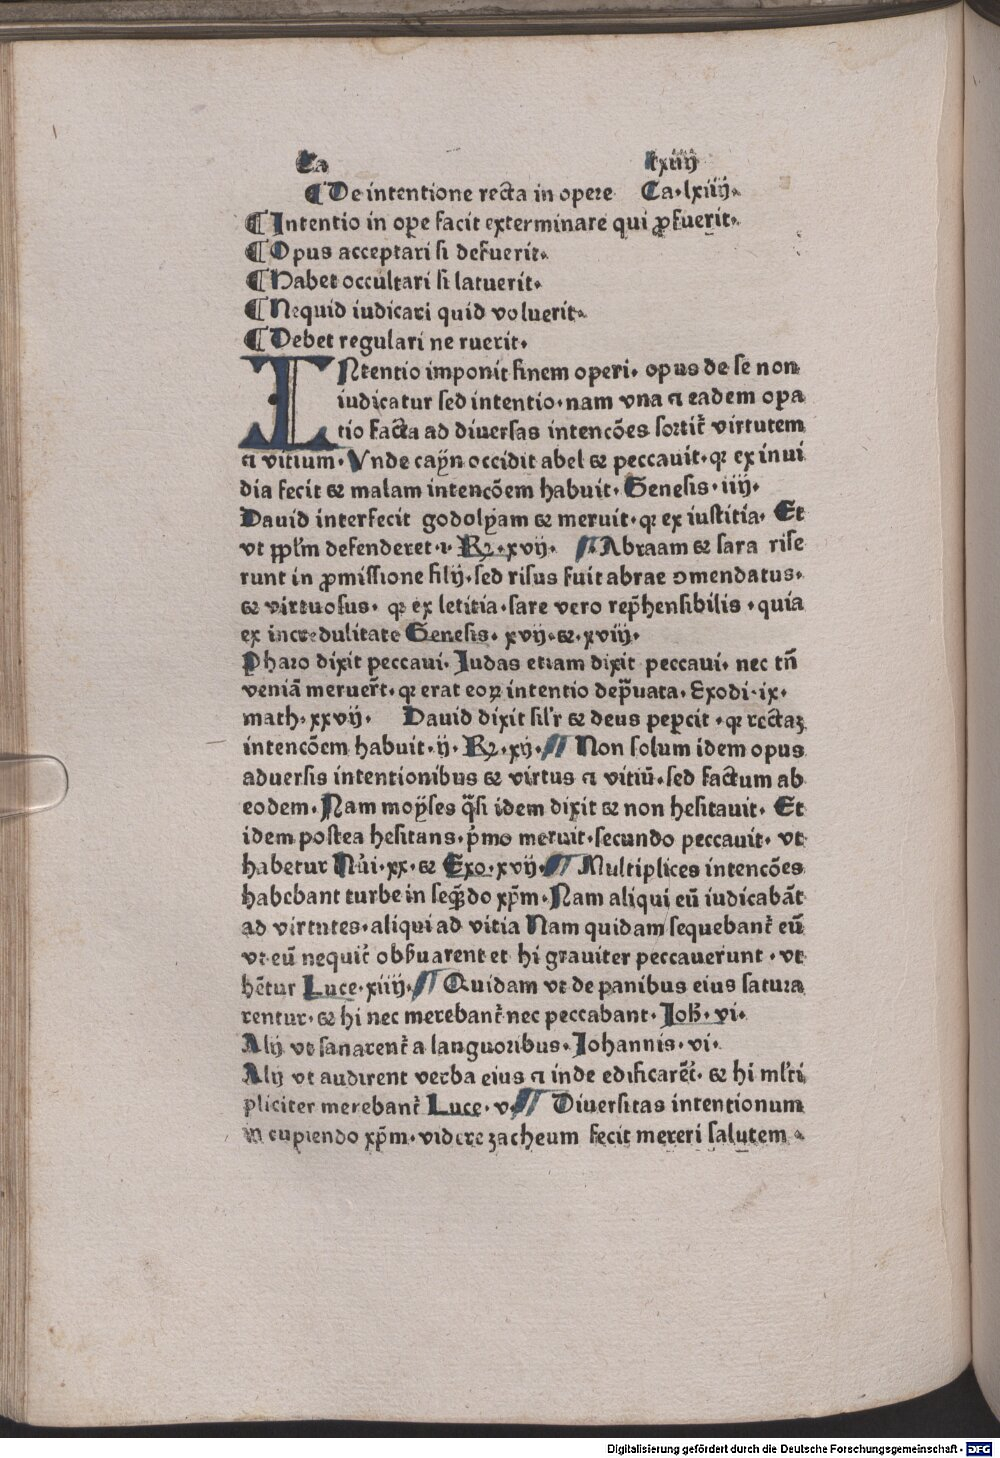 Ca lxiiij
¶ De intentione recta in opere Ca·lxiiij·
¶ Intentio in oꝑe facit exterminare qui ꝓfuerit·
¶ Opus acceptari si defuerit·
¶ Habet occultari si latuerit·
¶ Nequid iudicari quid voluerit·
¶ Debet regulari ne ruerit·
INtentio imponit finem operi· opus de se non
iudicatur sed intentio·nam vna ⁊ eadem opa
tio facta ad diuersas intencōes sortit᷑ virtutem
⁊ vitium· Vnde cayn occidit abel ⁊ peccauit·qꝛ ex inui
dia fecit ⁊ malam intencōem habuit· Genesis·iiij·
Dauid interfecit godolyam ⁊ meruit·qꝛ ex iustitia· Et
vt ppl'm defenderet·i· Rꝫ·xvij· ¶ Abraam ⁊ sara rise
runt in ꝓmissione filij·sed risus fuit abrae ꝯmendatus·
⁊ virtuosus· qꝛ ex letitia·sare vero rep̄hensibilis ·quia
ex incredulitate Genesis· xvij·⁊·xviij·
Pharo dixit peccaui· Iudas etiam dixit peccaui· nec tn̄
veniā meruer̄t·qꝛ erat eoꝝ intentio dep̄uata· Exodi·ix·
math·xxvij· Dauid dixit sil'r ⁊ deus peꝑcit ·qꝛ rectaꝫ
intencōem habuit·ij· Rꝫ·xij· ¶ Non solum idem opus
aduersis intentionibus ⁊ virtus ⁊ vitiū·sed factum ab
eodem· Nam moyses q̄si idem dixit ⁊ non hesitauit· Et
idem postea hesitans·p̄mo meruit·secundo peccauit· vt
habetur Nūi·xx·⁊ Exo·xvij· ¶ Multiplices intencōes
habebant turbe in seq̄do xp̄m·Nam aliqui eū iudicabāt
ad virtutes·aliqui ad vitia Nam quidam sequebant᷑ eū
vt eū nequit᷑ obẜuarent et hi grauiter peccauerunt · vt
hētur Luce·xiiij· ¶ Quidam vt de panibus eius satura
rentur·⁊ hi nec merebant᷑ nec peccabant· Ioh̄· vi·
Alij vt sanarent᷑ a languoribus· Johannis· vi·
Alij vt audirent verba eius ⁊ inde edificarēt᷑· ⁊ hi ml'ti
pliciter merebant᷑ Luce·v· ¶ Diuersitas intentionum
in cupiendo xp̄m·videre zacheum fecit mereri salutem ·
Digitalisierung gefördert durch die Deutsche Forschungsgemeinschaft - DFG